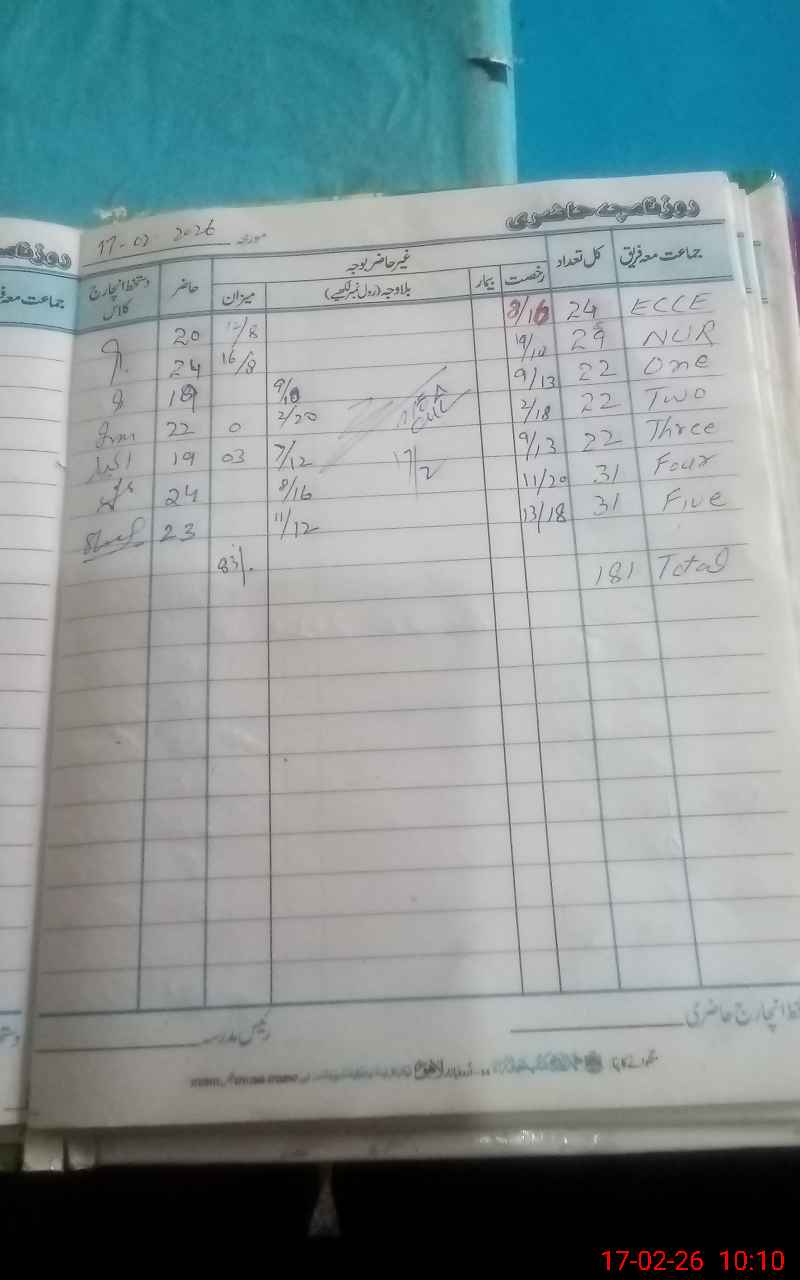 روزنامچہ حاضری
مورخہ 17-02-2026
جماعت معہ فریق کل تعداد غیر حاضر بوجہ حاضر دستخط انچارج کلاس
رخصت بیمار بلاوجہ (رول نمبر لکھیے) میزان
ECCE 24 8/16 12/8 20
NUR 29 19/10 16/8 24
One 22 9/13 9/10 19
Two 22 2/18 2/20 0 22
Three 22 9/13 7/12 03 19
Four 31 11/20 8/16 24
Five 31 13/18 11/12 23
17/2
Total 181 83%
دستخط انچارج حاضری
رئیس مدرسہ
جماعت معہ
17-02-26 10:10